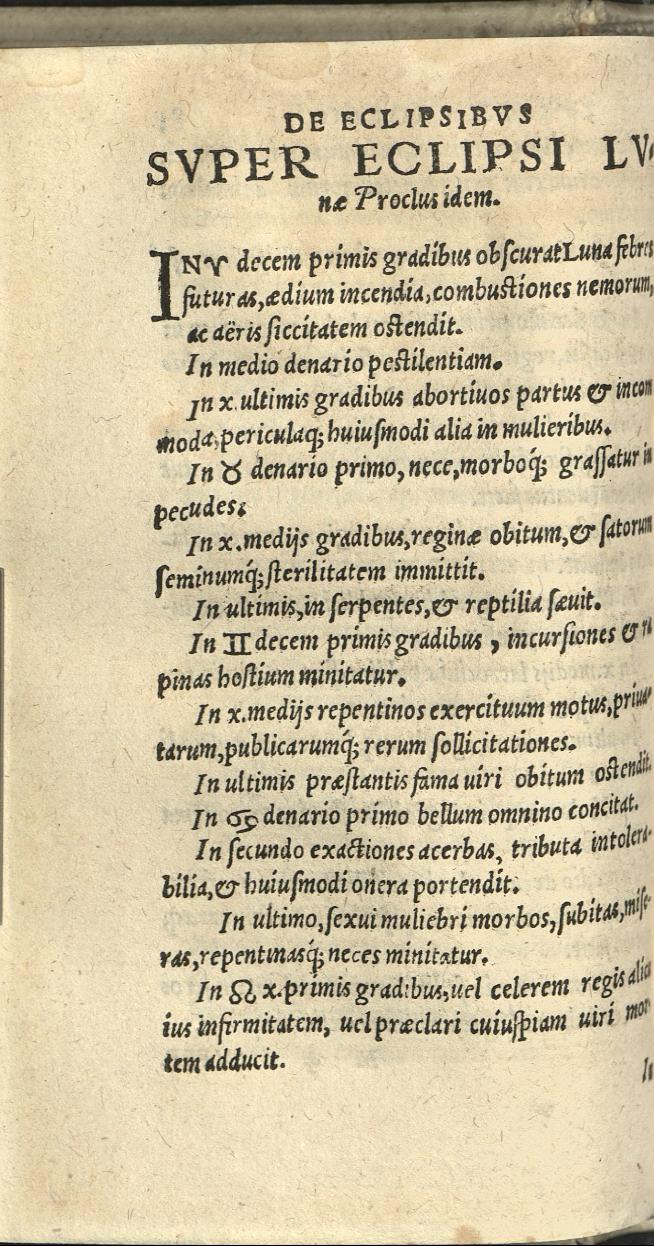 DE ECLIPSIBVS
SVPER ECLIPSI LV-
næ Proclus idem.
IN ♈ decem primis gradibus obſcurat Luna febres
futuras, ædium incendia, combuſtiones nemorum,
ac aëris ſiccitatem oſtendit.
In medio denario peſtilentiam.
In x. ultimis gradibus abortiuos partus & incom
moda, periculaq; huiuſmodi alia in mulieribus.
In ♉ denario primo, nece, morboq́; graſſatur in
pecudes.
In x. medijs gradibus, reginæ obitum, & ſatorum
ſeminumq́; ſterilitatem immittit.
In ultimis, in ſerpentes, & reptilia ſæuit.
In ♊ decem primis gradibus, incurſiones & ra
pinas hoſtium minitatur.
In x. medijs repentinos exercituum motus, priua-
tarum, publicarumq́; rerum ſollicitationes.
In ultimis præſtantis fama uiri obitum oſtendit.
In ♋ denario primo bellum omnino concitat.
In ſecundo exactiones acerbas, tributa intolera-
bilia, & huiuſmodi onera portendit.
In ultimo, ſexui muliebri morbos, ſubitas, miſe-
ras, repentinasq́; neces minitatur.
In ♌ x. primis gradibus, uel celerem regis alicu
ius infirmitatem, uel præclari cuiuſpiam uiri mor
tem adducit.